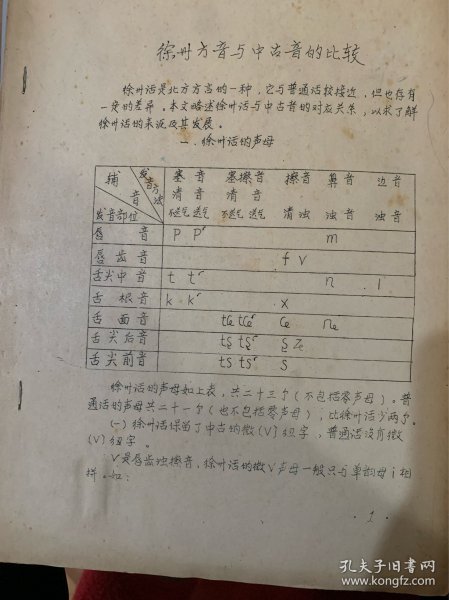 徐州方音与中古音的比较
徐州话是北方方言的一种，它与普通话较接近，但也存有
一定的差异。本文略述徐州话与中古音的对应关系，以求了解
徐州话的来源及其发展。
一、徐州话的声母
辅音 发音方法 发音部位 塞音 塞擦音 擦音 鼻音 边音
清音 清音 清 浊 浊音 浊音
不送气 送气 不送气 送气
唇音 p pʻ m
唇齿音 f v
舌尖中音 t tʻ n l
舌根音 k kʻ x
舌面音 tɕ tɕʻ ɕ
舌尖后音 tʂ tʂʻ ʂ ʐ
舌尖前音 ts tsʻ s
徐州话的声母如上表，共二十三个（不包括零声母）。普
通话的声母共二十一个（也不包括零声母），比徐州话少两个。
(一)徐州话保留了中古的微（V）纽字，普通话没有微
（V）纽字。
V是唇齿浊擦音，徐州话的微V声母一般只与单韵母i相
拼。如：
1
孔夫子旧书网
www.kongfz.com